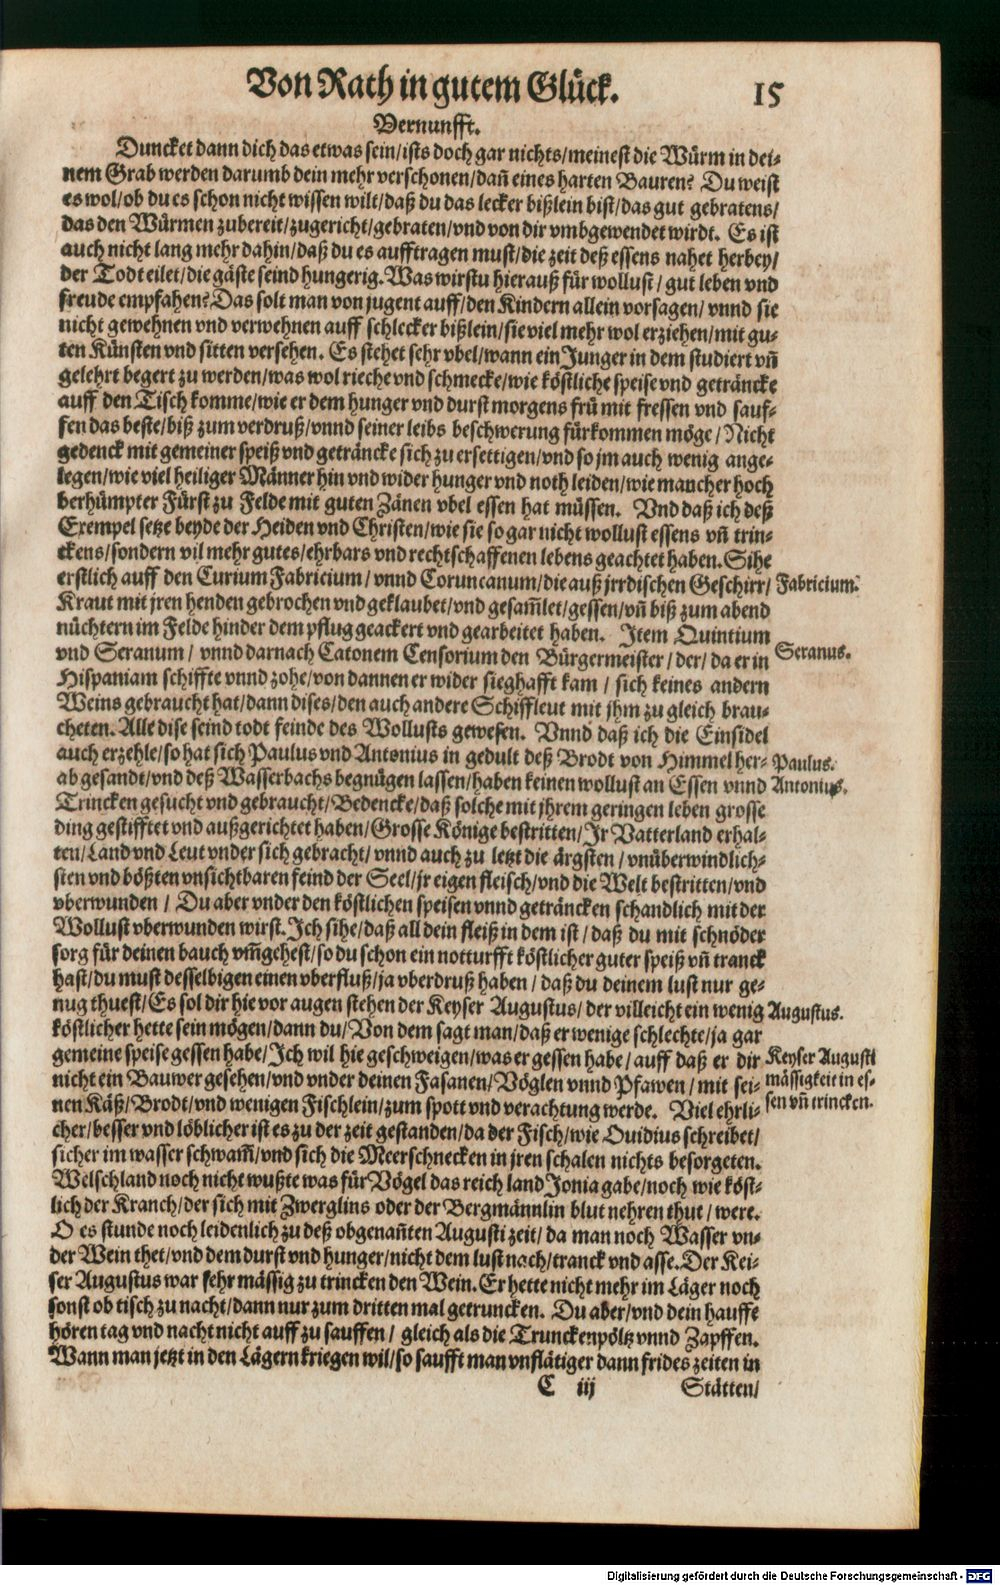 Von Rath in gutem Glück. 15
Vernunfft.
Duncket dann dich das etwas sein/ists doch gar nichts/meinest die Würm in dei-
nem Grab werden darumb dein mehr verschonen/dañ eines harten Bauren? Du weist
es wol/ob du es schon nicht wissen wilt/daß du das lecker bißlein bist/das gut gebratens/
das den Würmen zubereit/zugericht/gebraten/vnd von dir vmbgewendet wirdt. Es ist
auch nicht lang mehr dahin/daß du es aufftragen must/die zeit deß essens nahet herbey/
der Todt eilet/die gäste seind hungerig. Was wirstu hierauß für wollust/gut leben vnd
freude empfahen? Das solt man von jugent auff/den Kindern allein vorsagen/vnnd sie
nicht gewehnen vnd verwehnen auff schlecker bißlein/sie viel mehr wol erziehen/mit gu-
ten Künsten vnd sitten versehen. Es stehet sehr vbel/wann ein Junger in dem studiert vñ
gelehrt begert zu werden/was wol rieche vnd schmecke/wie köstliche speise vnd geträncke
auff den Tisch komme/wie er dem hunger vnd durst morgens frü mit fressen vnd sauf-
fen das beste/biß zum verdruß/vnnd seiner leibs beschwerung fürkommen möge/Nicht
gedenck mit gemeiner speiß vnd geträncke sich zu ersettigen/vnd so jm auch wenig ange-
legen/wie viel heiliger Männer hin vnd wider hunger vnd noth leiden/wie mancher hoch
berhümpter Fürst zu Felde mit guten Zänen vbel essen hat müssen. Vnd daß ich deß
Exempel setze beyde der Heiden vnd Christen/wie sie so gar nicht wollust essens vñ trin-
ckens/sondern vil mehr gutes/ehrbars vnd rechtschaffenen lebens geachtet haben. Sihe
erstlich auff den Curium Fabricium/vnnd Coruncanum/die auß jrrdischen Geschirr/ Fabricium.
Kraut mit jren henden gebrochen vnd geklaubet/vnd gesam̃let/gessen/vñ biß zum abend
nüchtern im Felde hinder dem pflug geackert vnd gearbeitet haben. Item Quintium
vnd Seranum/vnnd darnach Catonem Censorium den Bürgermeister/der/da er in Seranus.
Hispaniam schiffte vnnd zohe/von dannen er wider sieghafft kam/sich keines andern
Weins gebraucht hat/dann dises/den auch andere Schiffleut mit jhm zu gleich brau-
cheten. Alle dise seind todt feinde des Wollusts gewesen. Vnnd daß ich die Einsidel
auch erzehle/so hat sich Paulus vnd Antonius in gedult deß Brodt von Himmel her- Paulus.
ab gesandt/vnd deß Wasserbachs begnügen lassen/haben keinen wollust an Essen vnnd Antonius.
Trincken gesucht vnd gebraucht/Bedencke/daß solche mit jhrem geringen leben grosse
ding gestifftet vnd außgerichtet haben/Grosse Könige bestritten/Ir Vatterland erhal-
ten/Land vnd Leut vnder sich gebracht/vnnd auch zu letzt die ärgsten/vnüberwindlich-
sten vnd bößten vnsichtbaren feind der Seel/jr eigen fleisch/vnd die Welt bestritten/vnd
vberwunden/Du aber vnder den köstlichen speisen vnnd geträncken schandlich mit der
Wollust vberwunden wirst. Ich sihe/daß all dein fleiß in dem ist/daß du mit schnöder
sorg für deinen bauch vm̃gehest/so du schon ein notturfft köstlicher guter speiß vñ tranck
hast/du must desselbigen einen vberfluß/ja vberdruß haben/daß du deinem lust nur ge-
nug thuest/Es sol dir hie vor augen stehen der Keyser Augustus/der villeicht ein wenig Augustus.
köstlicher hette sein mögen/dann du/Von dem sagt man/daß er wenige schlechte/ja gar
gemeine speise gessen habe/Ich wil hie geschweigen/was er gessen habe/auff daß er dir Keyser Augusti
nicht ein Bauwer gesehen/vnd vnder deinen Fasanen/Vöglen vnnd Pfawen/mit sei- mässigkeit in es-
nen Käß/Brodt/vnd wenigen Fischlein/zum spott vnd verachtung werde. Viel ehrli- sen vñ trincken.
cher/besser vnd löblicher ist es zu der zeit gestanden/da der Fisch/wie Ouidius schreibet/
sicher im wasser schwam̃/vnd sich die Meerschnecken in jren schalen nichts besorgeten.
Welschland noch nicht wußte was für Vögel das reich land Jonia gabe/noch wie köst-
lich der Kranch/der sich mit Zwerglins oder der Bergmännlin blut nehren thut/were.
O es stunde noch leidenlich zu deß obgenañten Augusti zeit/da man noch Wasser vn-
der Wein thet/vnd dem durst vnd hunger/nicht dem lust nach/tranck vnd asse. Der Kei-
ser Augustus war sehr mässig zu trincken den Wein. Er hette nicht mehr im Läger noch
sonst ob tisch zu nacht/dann nur zum dritten mal getruncken. Du aber/vnd dein hauffe
hören tag vnd nacht nicht auff zu sauffen/gleich als die Trunckenpöltz vnnd Zapffen.
Wann man jetzt in den Lägern kriegen wil/so saufft man vnflätiger dann frides zeiten in
C iij Stätten/
Digitalisierung gefördert durch die Deutsche Forschungsgemeinschaft - DFG